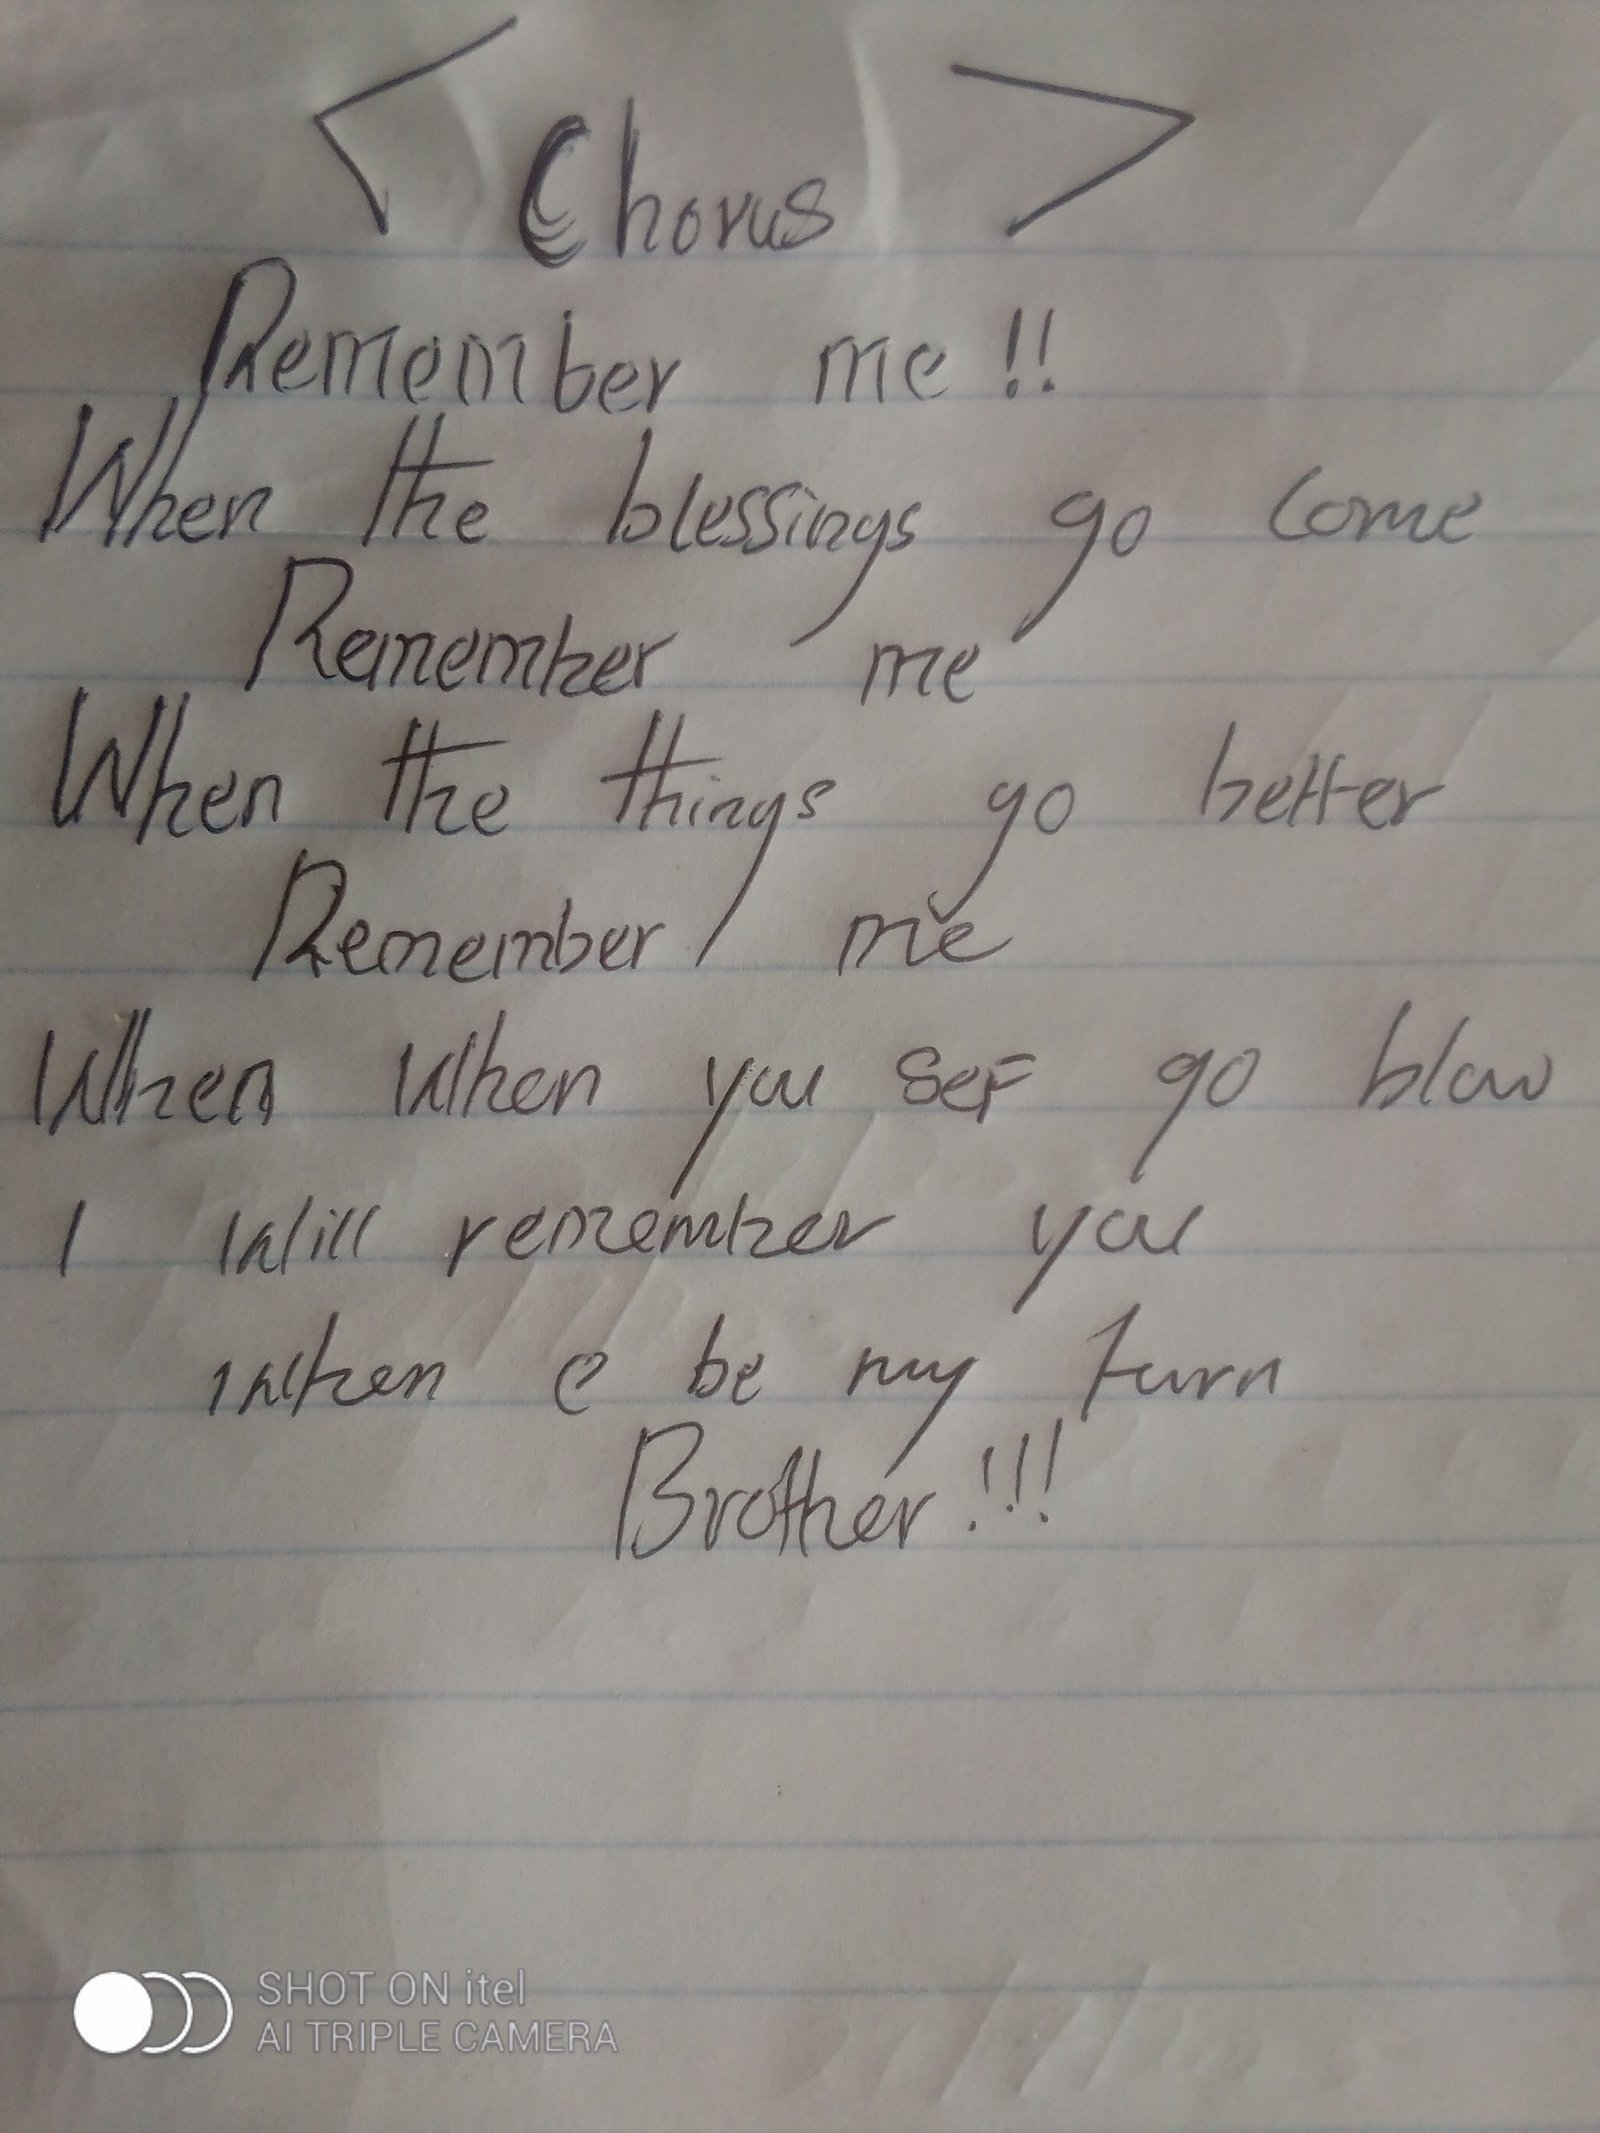 < Chorus >
Remember me !!
When the blessings go come
Remember me
When the things go better
Remember me
When when you sef go blow
I will remember you
when e be my turn
Brother !!!
SHOT ON itel
AI TRIPLE CAMERA